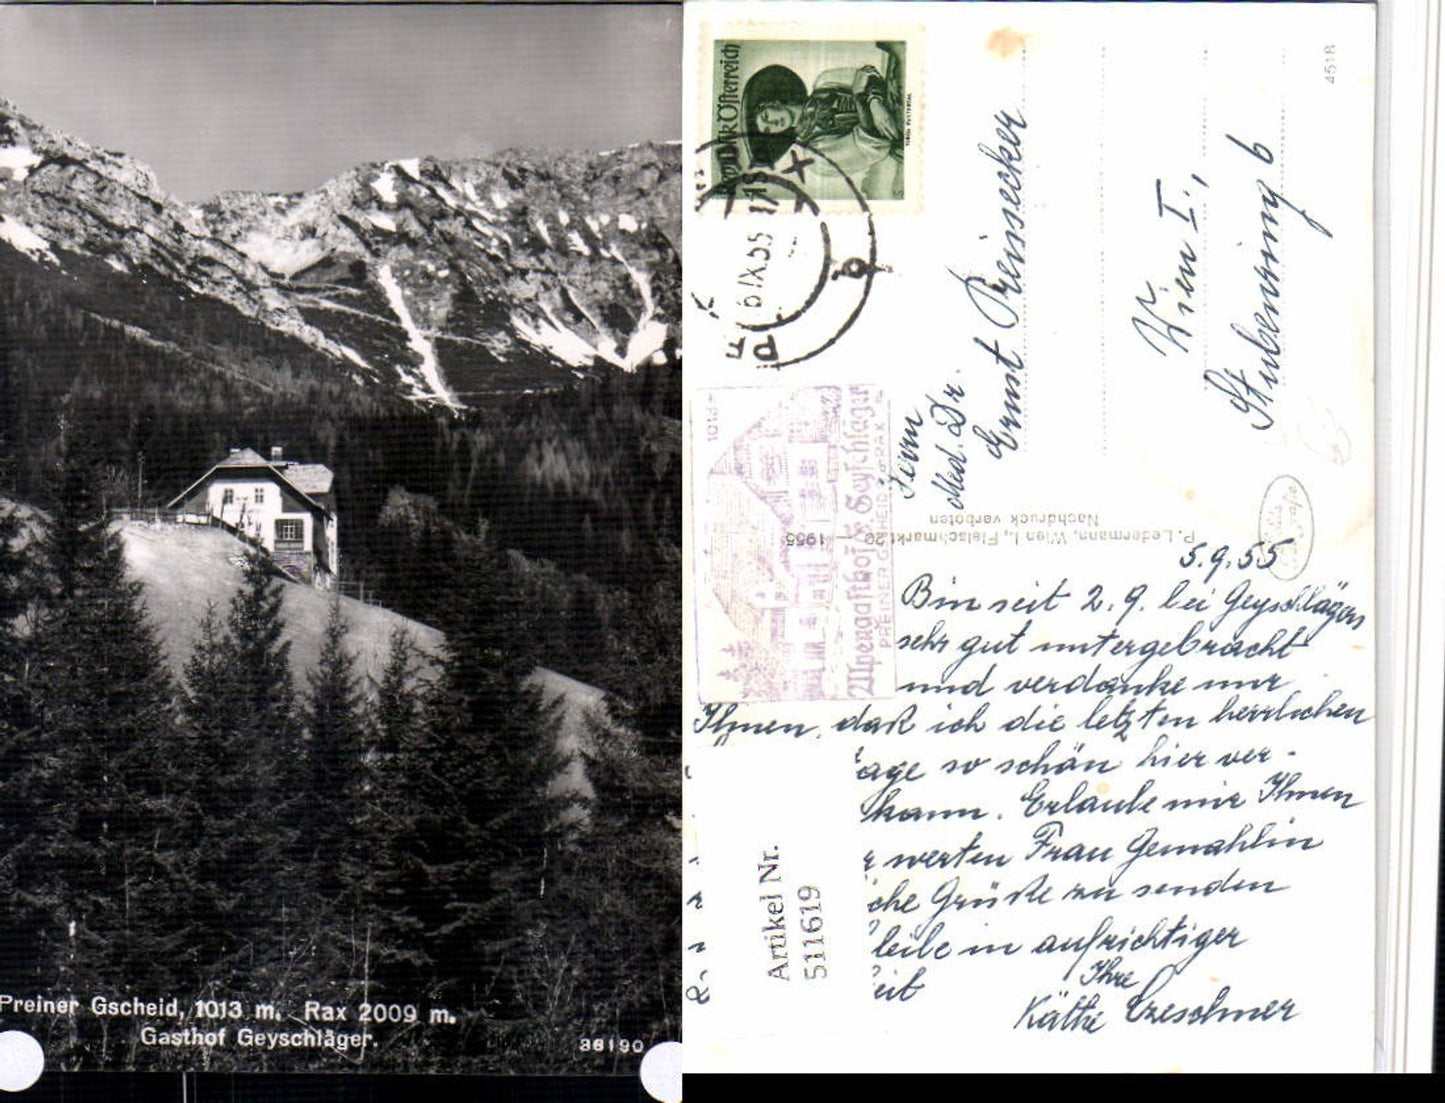 Preiner Gscheid, 1013 m. Rax 2009 m.
Gasthof Geyschläger.
36190
Österreich
6 IX 55 17
1013m
Alpengasthof G. Geyschläger
PREINER GSCHEID
RAX
Herrn
Med. Dr.
Ernst Preinsecker
Wien I.,
Stubenring 6
4518
P. Ledermann, Wien I., Fleischmarkt 20 1955
Nachdruck verboten
5.9.55
Bin seit 2.9. bei Geyschlägers
sehr gut untergebracht
und verdanke nur
Ihnen, daß ich die letzten herrlichen
age so schön hier ver-
kann. Erlaube mir Ihnen
werten Frau Gemahlin
che Grüße zu senden
leibe in aufrichtiger
eit
Ihre
Käthe
Artikel Nr.
511619